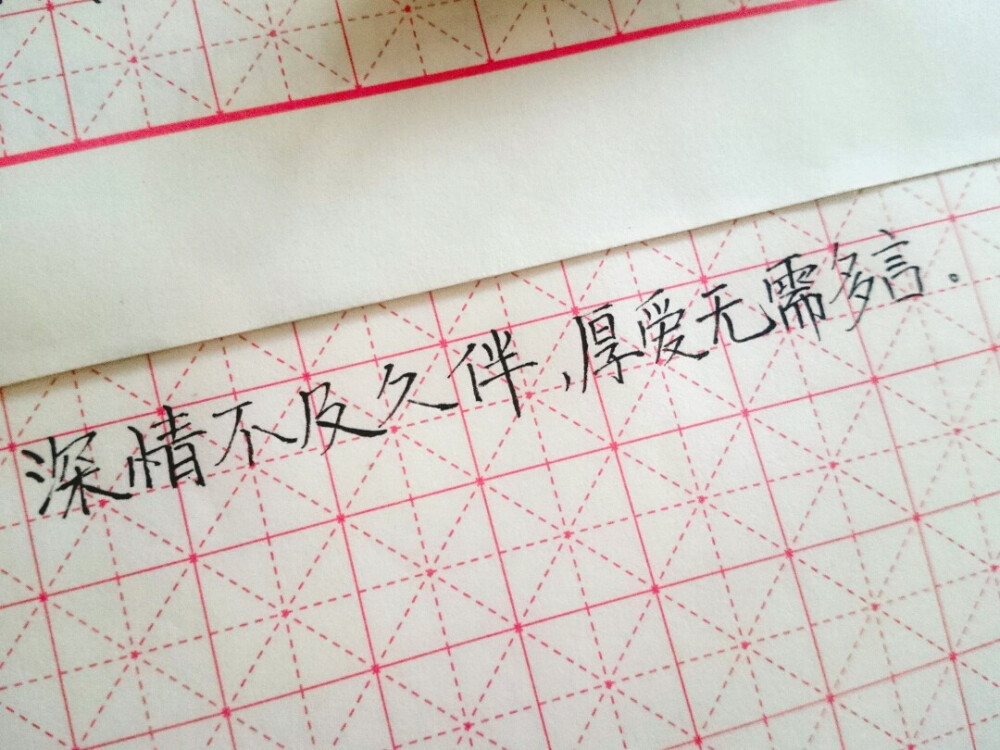 深情不及久伴,厚爱无需多言.